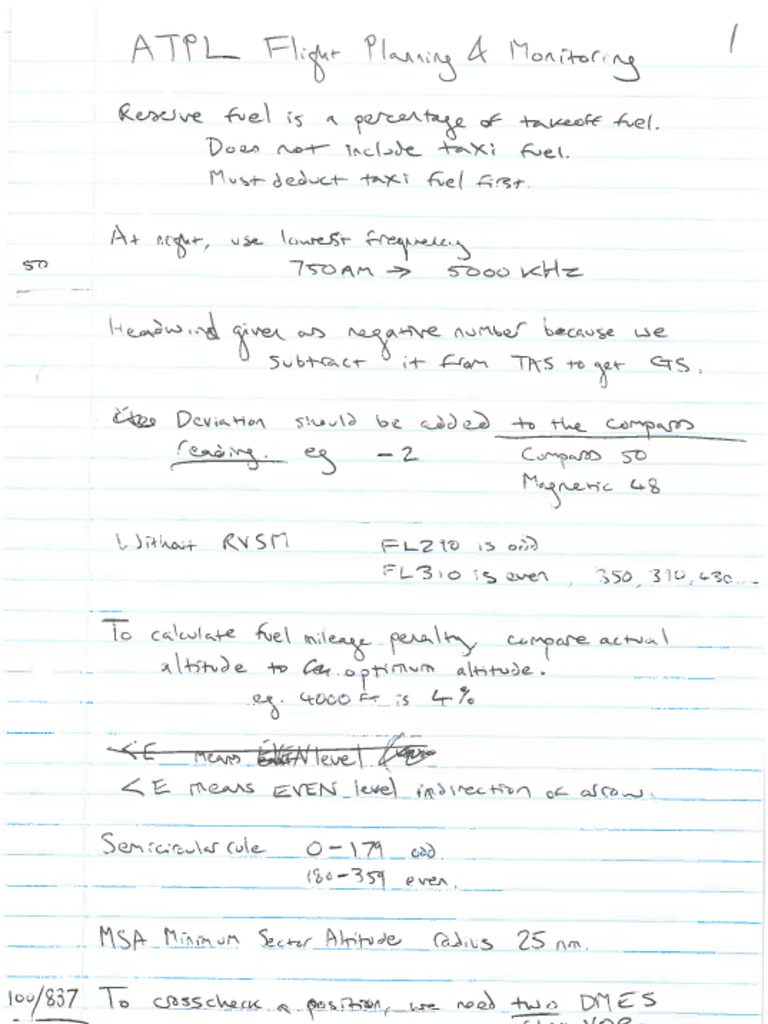 ATPL Flight Planning & Monitoring
1
Reserve fuel is a percentage of takeoff fuel.
Does not include taxi fuel.
Must deduct taxi fuel first.
At night, use lowest frequency
50
750AM → 5000 KHz
Headwind given as negative number because we
subtract it from TAS to get GS.
Deviation should be added to the compass
reading. eg -2 Compass 50
Magnetic 48
Without RVSM FL290 is odd
FL310 is even, 350, 390, 430...
To calculate fuel mileage penalty compare actual
altitude to optimum altitude.
eg. 4000 FT is 4%
<E means EVEN level
<E means EVEN level in direction of arrow.
Semicircular rule 0-179 odd
180-359 even.
MSA Minimum Sector Altitude radius 25 nm.
100/837 To crosscheck a position, we need two DMES